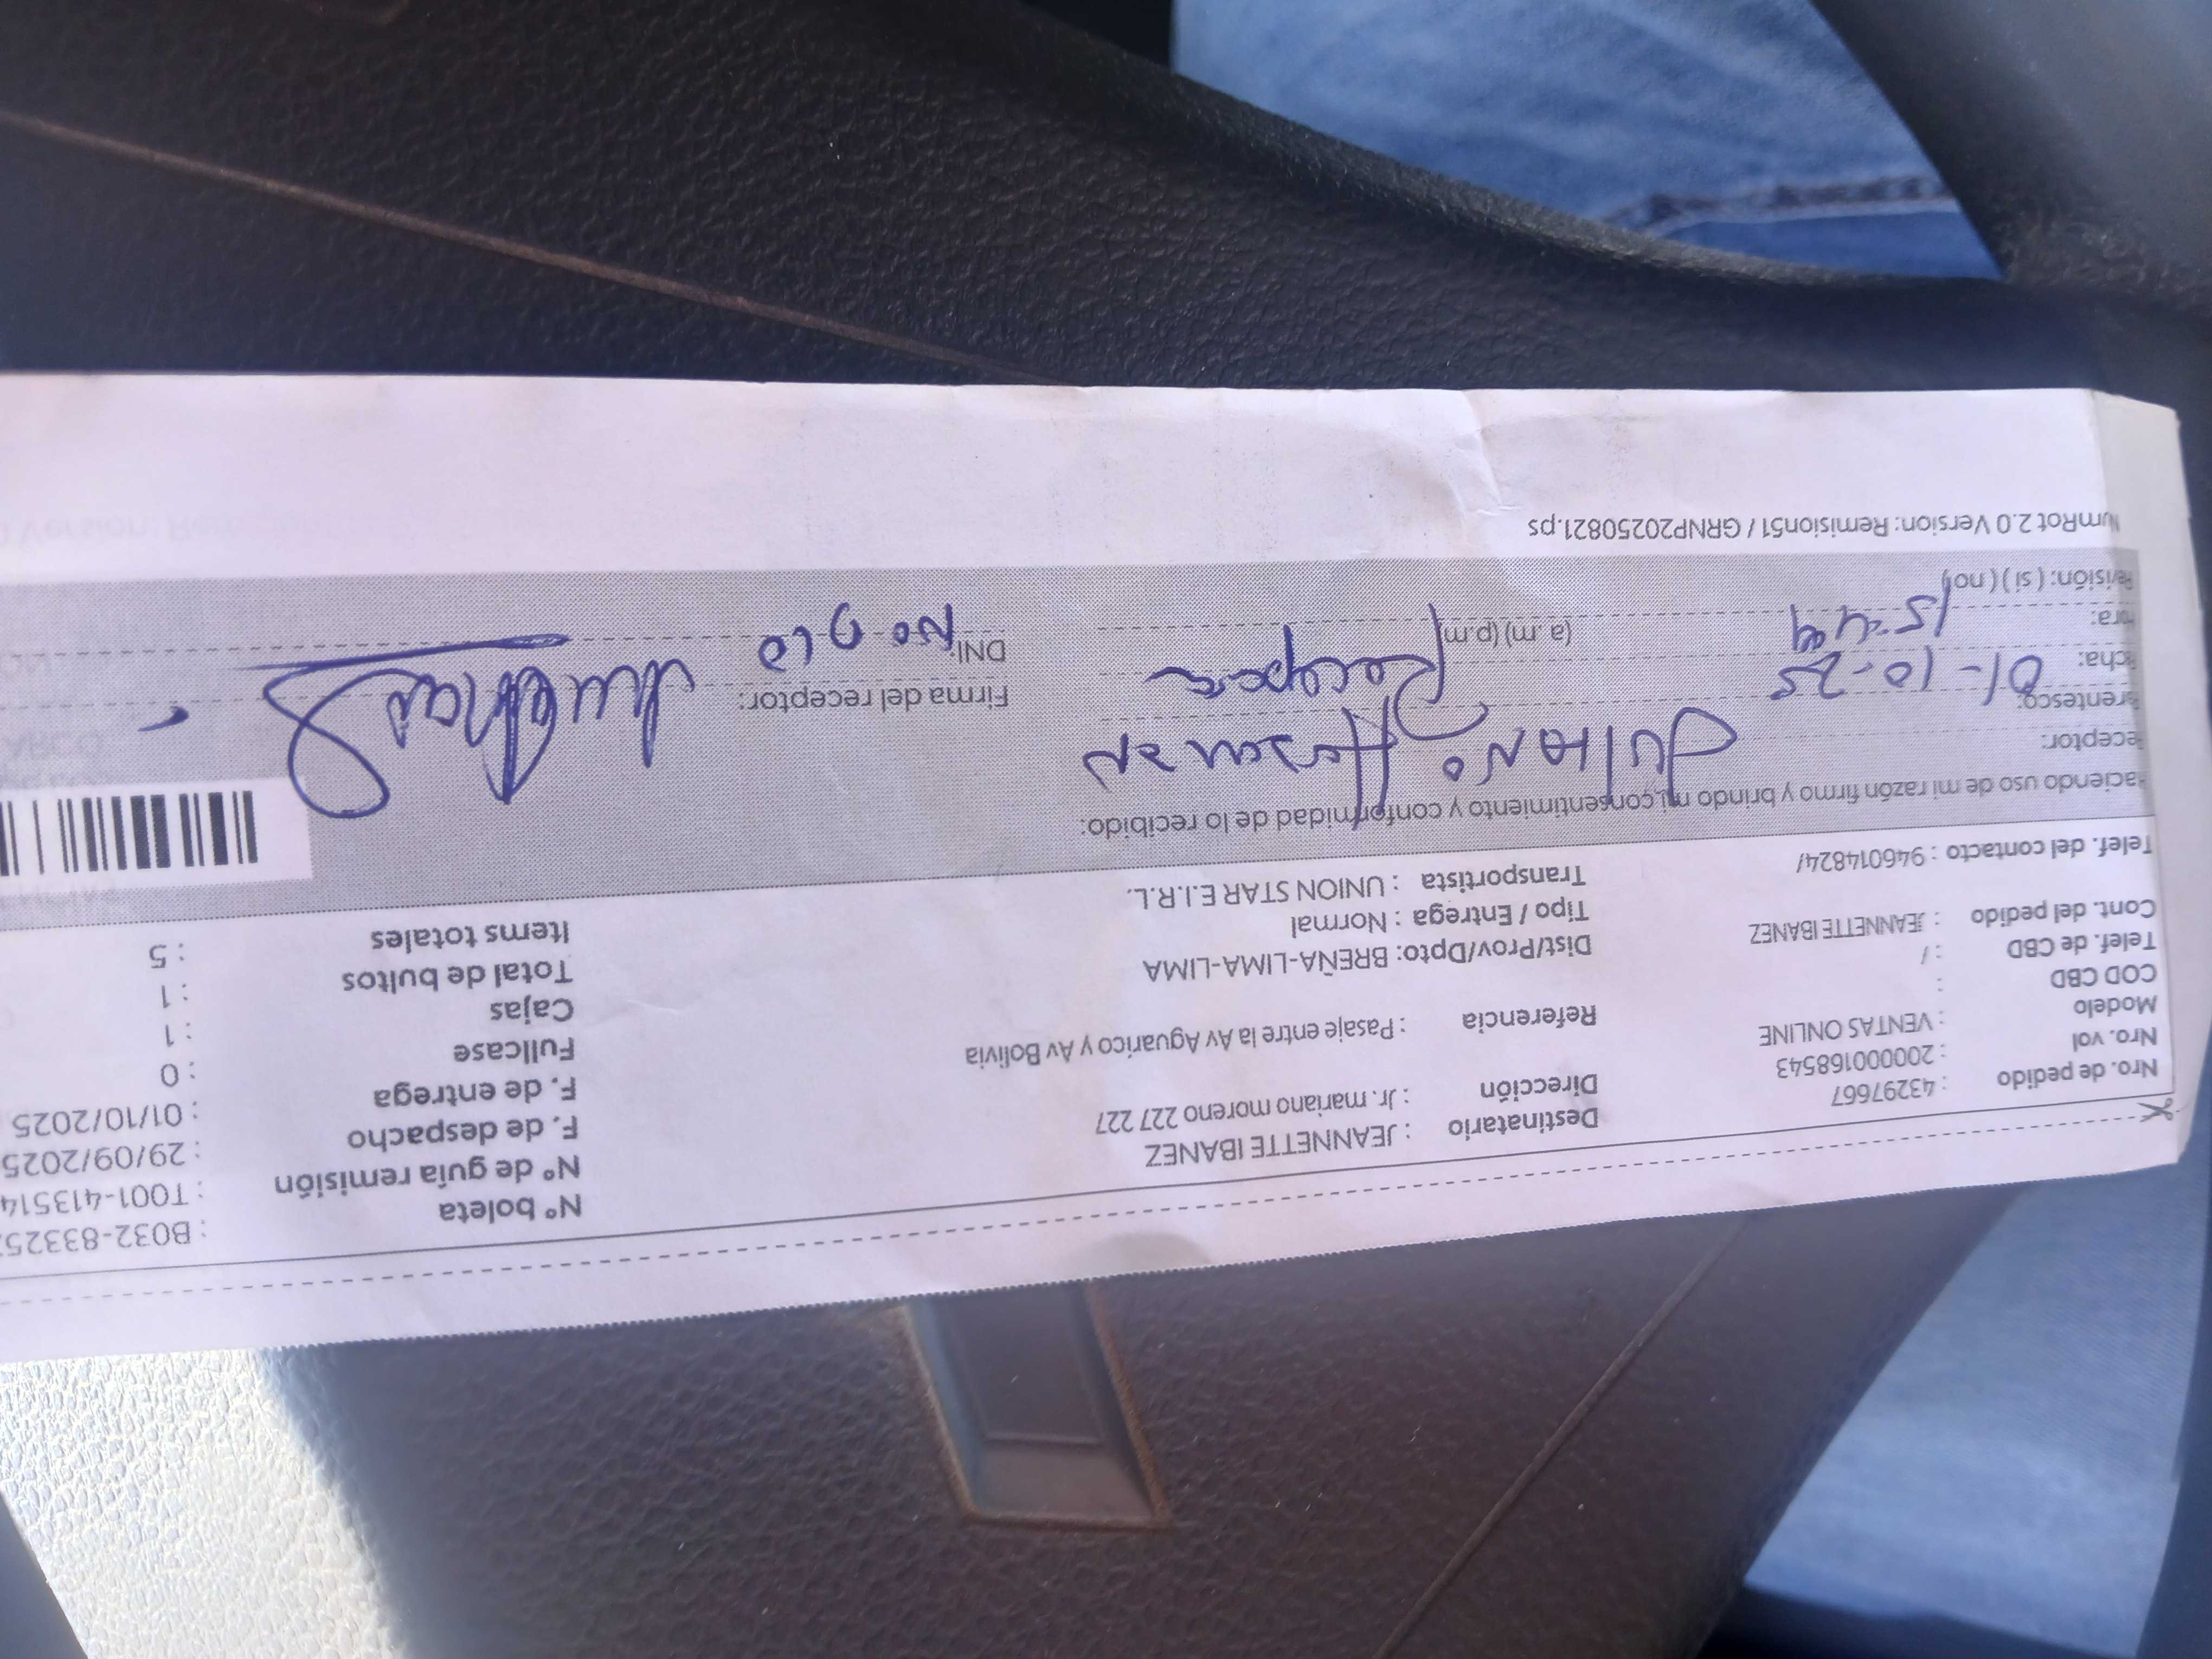 Nro. de pedido : 43297667
Nro. vol : 20000168543
Modelo : VENTAS ONLINE
COD CBD :
Telef. de CBD : /
Cont. del pedido : JEANNETTE IBANEZ
Telef. del contacto : 946014824/
Destinatario : JEANNETTE IBANEZ
Dirección : Jr. mariano moreno 227 227
Referencia : Pasaje entre la Av Aguarico y Av Bolivia
Dist/Prov/Dpto: BREÑA-LIMA-LIMA
Tipo / Entrega : Normal
Transportista : UNION STAR E.I.R.L.
N° boleta : B032-83325
N° de guía remisión : T001-413514
F. de despacho : 29/09/2025
F. de entrega : 01/10/2025
Fullcase : 0
Cajas : 1
Total de bultos : 1
Items totales : 5
Haciendo uso de mi razón firmo y brindo mi consentimiento y conformidad de lo recibido:
Receptor: JULIANO
Parentesco:
Fecha: 01-10-25
Hora: 15:44 (a.m) (p.m)
Revisión: ( si ) ( no )
Firma del receptor:
DNI: No DIO
NumRot 2.0 Version: Remision51 / GRNP20250821.ps